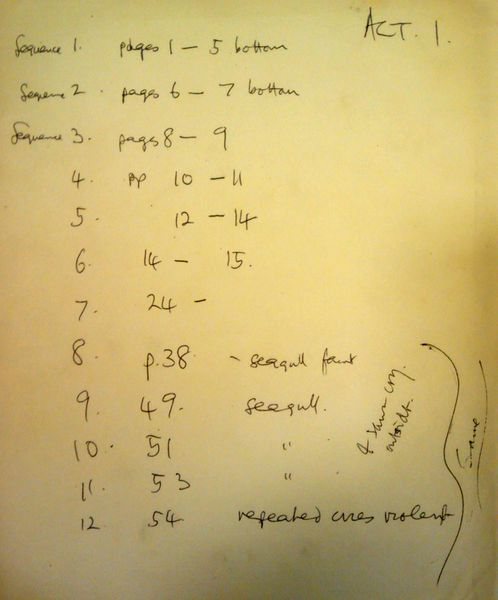 ACT. 1.
Sequence 1. pages 1 - 5 bottom
Sequence 2. pages 6 - 7 bottom
Sequence 3. pages 8 - 9
4. pp 10 - 11
5. 12 - 14
6. 14 - 15.
7. 24 -
8. p.38 - seagull faint
9. 49. seagull.
10. 51 "
11. 53 "
12. 54 repeated cries violent
outside.